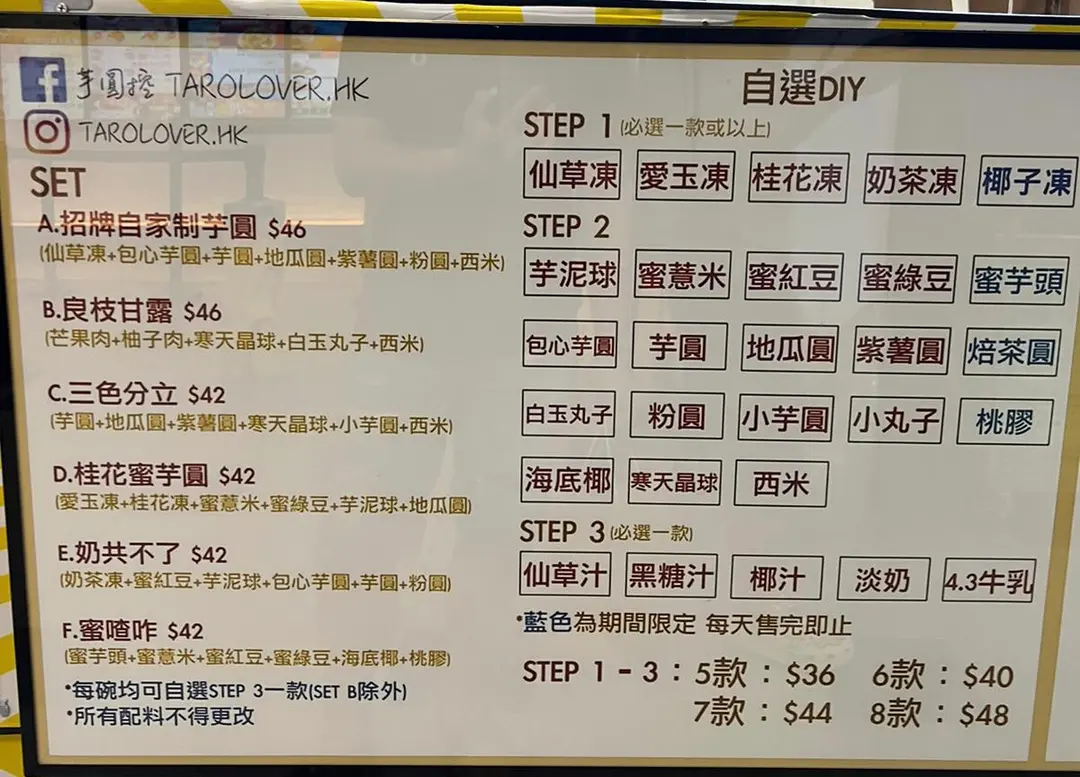 芋圓控 TAROLOVER.HK
TAROLOVER.HK
SET
A.招牌自家制芋圓 $46
(仙草凍+包心芋圓+芋圓+地瓜圓+紫薯圓+粉圓+西米)
B.良枝甘露 $46
(芒果肉+柚子肉+寒天晶球+白玉丸子+西米)
C.三色分立 $42
(芋圓+地瓜圓+紫薯圓+寒天晶球+小芋圓+西米)
D.桂花蜜芋圓 $42
(愛玉凍+桂花凍+蜜薏米+蜜綠豆+芋泥球+地瓜圓)
E.奶共不了 $42
(奶茶凍+蜜紅豆+芋泥球+包心芋圓+芋圓+粉圓)
F.蜜喳咋 $42
(蜜芋頭+蜜薏米+蜜紅豆+蜜綠豆+海底椰+桃膠)
•每碗均可自選STEP 3一款(SET B除外)
•所有配料不得更改
自選DIY
STEP 1 (必選一款或以上)
仙草凍 愛玉凍 桂花凍 奶茶凍 椰子凍
STEP 2
芋泥球 蜜薏米 蜜紅豆 蜜綠豆 蜜芋頭
包心芋圓 芋圓 地瓜圓 紫薯圓 焙茶圓
白玉丸子 粉圓 小芋圓 小丸子 桃膠
海底椰 寒天晶球 西米
STEP 3 (必選一款)
仙草汁 黑糖汁 椰汁 淡奶 4.3牛乳
•藍色為期間限定 每天售完即止
STEP 1 - 3：5款：$36 6款：$40
7款：$44 8款：$48